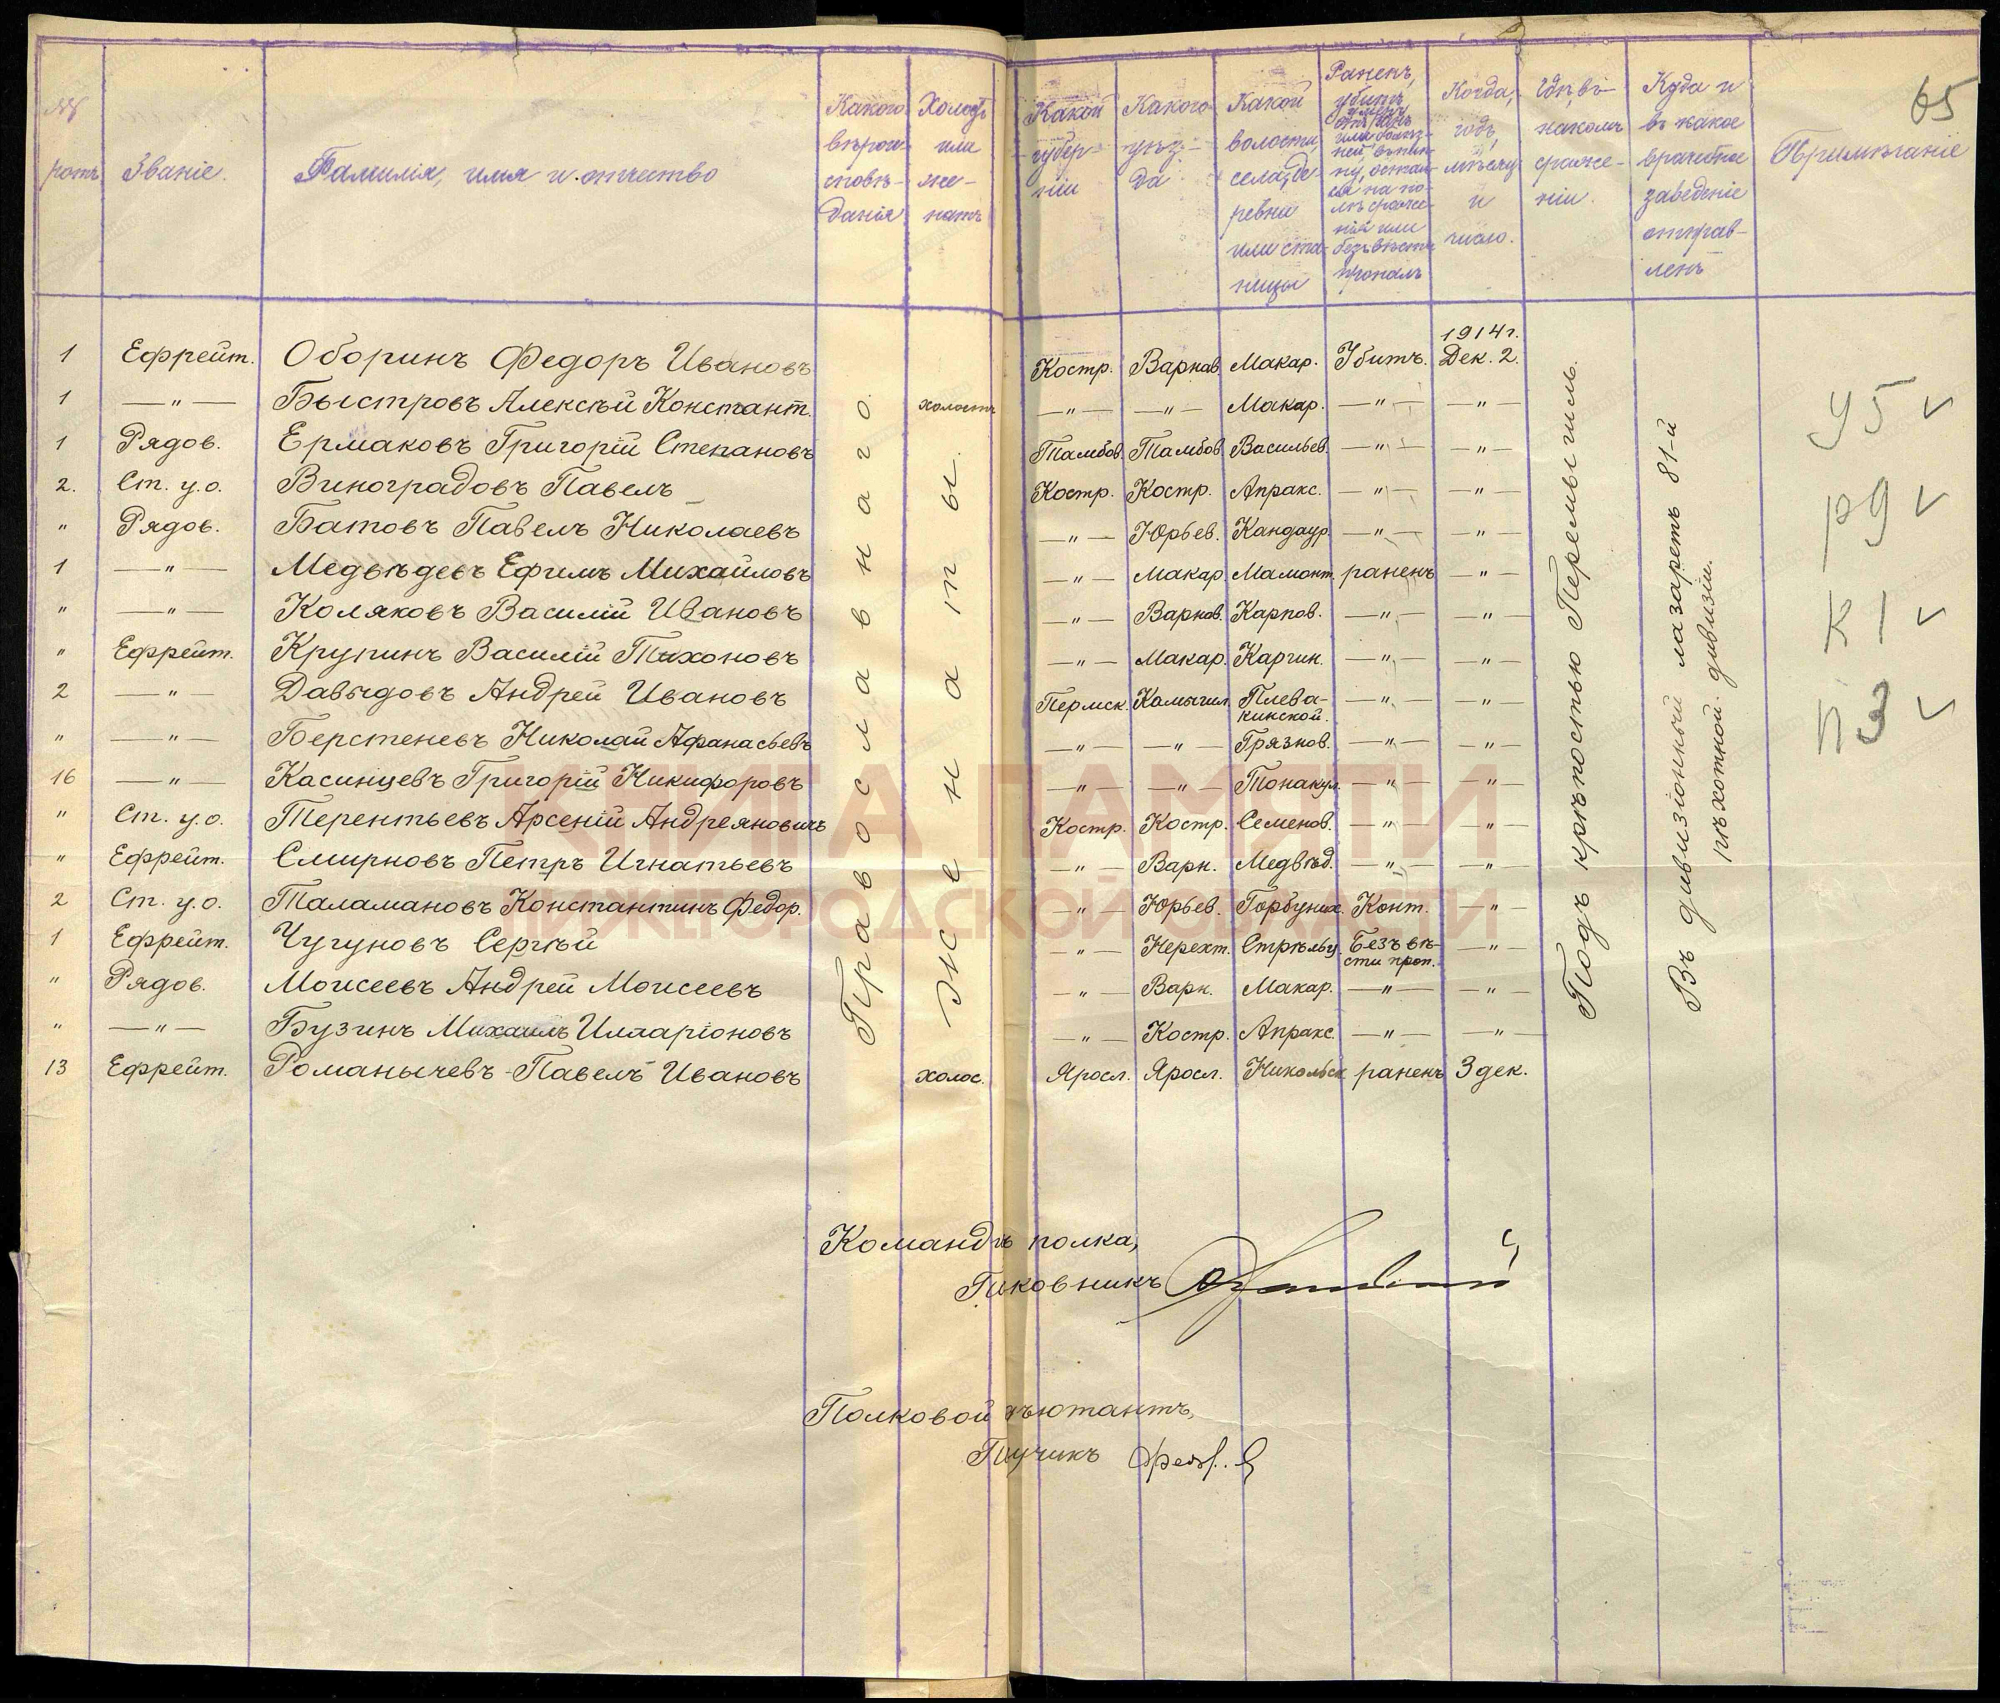 65
№№ ротъ
Званіе.
Фамилія, имя и отчество
Какого вѣрои- сповѣ- данія
Холостъ или же- натъ
Какой губер- ніи
Какого уѣз- да
Какой волости, села, де- ревни или ста- ницы
Раненъ, убитъ,
или болѣз- ней, въ плѣ- ну, остал- ся на по- лѣ сраже- нія или безъ вѣсти пропалъ
Когда, годъ, мѣсяцъ и число.
Гдѣ, въ какомъ сраже- ніи.
Куда и въ какое врачебное заведеніе отправ- ленъ
Примѣчаніе
1914 г.
1 Ефрейт. Оборинъ Федоръ Ивановъ Костр. Варнав. Макар. Убитъ. Дек. 2.
1 — " — Быстровъ Алексѣй Констант. холостъ — " — — " — Макар. — " — — " —
1 Рядов. Ермаковъ Григорій Степановъ Тамбов. Тамбов. Васильев. — " — — " —
2. Ст. у.о. Виноградовъ Павелъ Костр. Костр. Апракс. — " — — " —
" Рядов. Батовъ Павелъ Николаевъ — " — Юрьев. Кандаур. — " — — " —
1 — " — Медвѣдевъ Ефимъ Михайловъ — " — Макар. Мамонт. раненъ — " —
" — " — Коляковъ Василій Ивановъ — " — Варнав. Карпов. — " — — " —
" Ефрейт. Крупинъ Василій Тихоновъ — " — Макар. Каргин. — " — — " —
2 — " — Давыдовъ Андрей Ивановъ Пермск. Камышл. Плева- кинской. — " — — " —
" — " — Берстеневъ Николай Афанасьевъ — " — — " — Грязнов. — " — — " —
16 — " — Касинцевъ Григорій Никифоровъ — " — — " — Тонакул. — " — — " —
" Ст. у.о. Терентьевъ Арсеній Андреяновичъ Костр. Костр. Семенов. — " — — " —
" Ефрейт. Смирновъ Петръ Игнатьевъ — " — Варн. Медвѣд. — " — — " —
2 Ст. у.о. Таламановъ Константинъ Федор. — " — Юрьев. Горбуних. Конт. — " —
1 Ефрейт. Чугуновъ Сергѣй — " — Нерехт. Стрѣльц. Безъ вѣ- сти проп. — " —
" Рядов. Моисеевъ Андрей Моисеевъ — " — Варн. Макар. — " — — " —
" — " — Бузинъ Михаилъ Иларіоновъ — " — Костр. Апракс. — " — — " —
13 Ефрейт. Романычевъ Павелъ Ивановъ холос. Яросл. Яросл. Никольск. раненъ 3 дек.
Православнаго.
Женаты.
Подъ крѣпостью Перемышль.
Въ дивизіонный лазаретъ 81-й
пѣхотной дивизіи.
У5 ✓
Р9 ✓
К1 ✓
П3 ✓
КНИГА ПАМЯТИ
НИЖЕГОРОДСКОЙ ОБЛАСТИ
Командъ полка,
Полковой